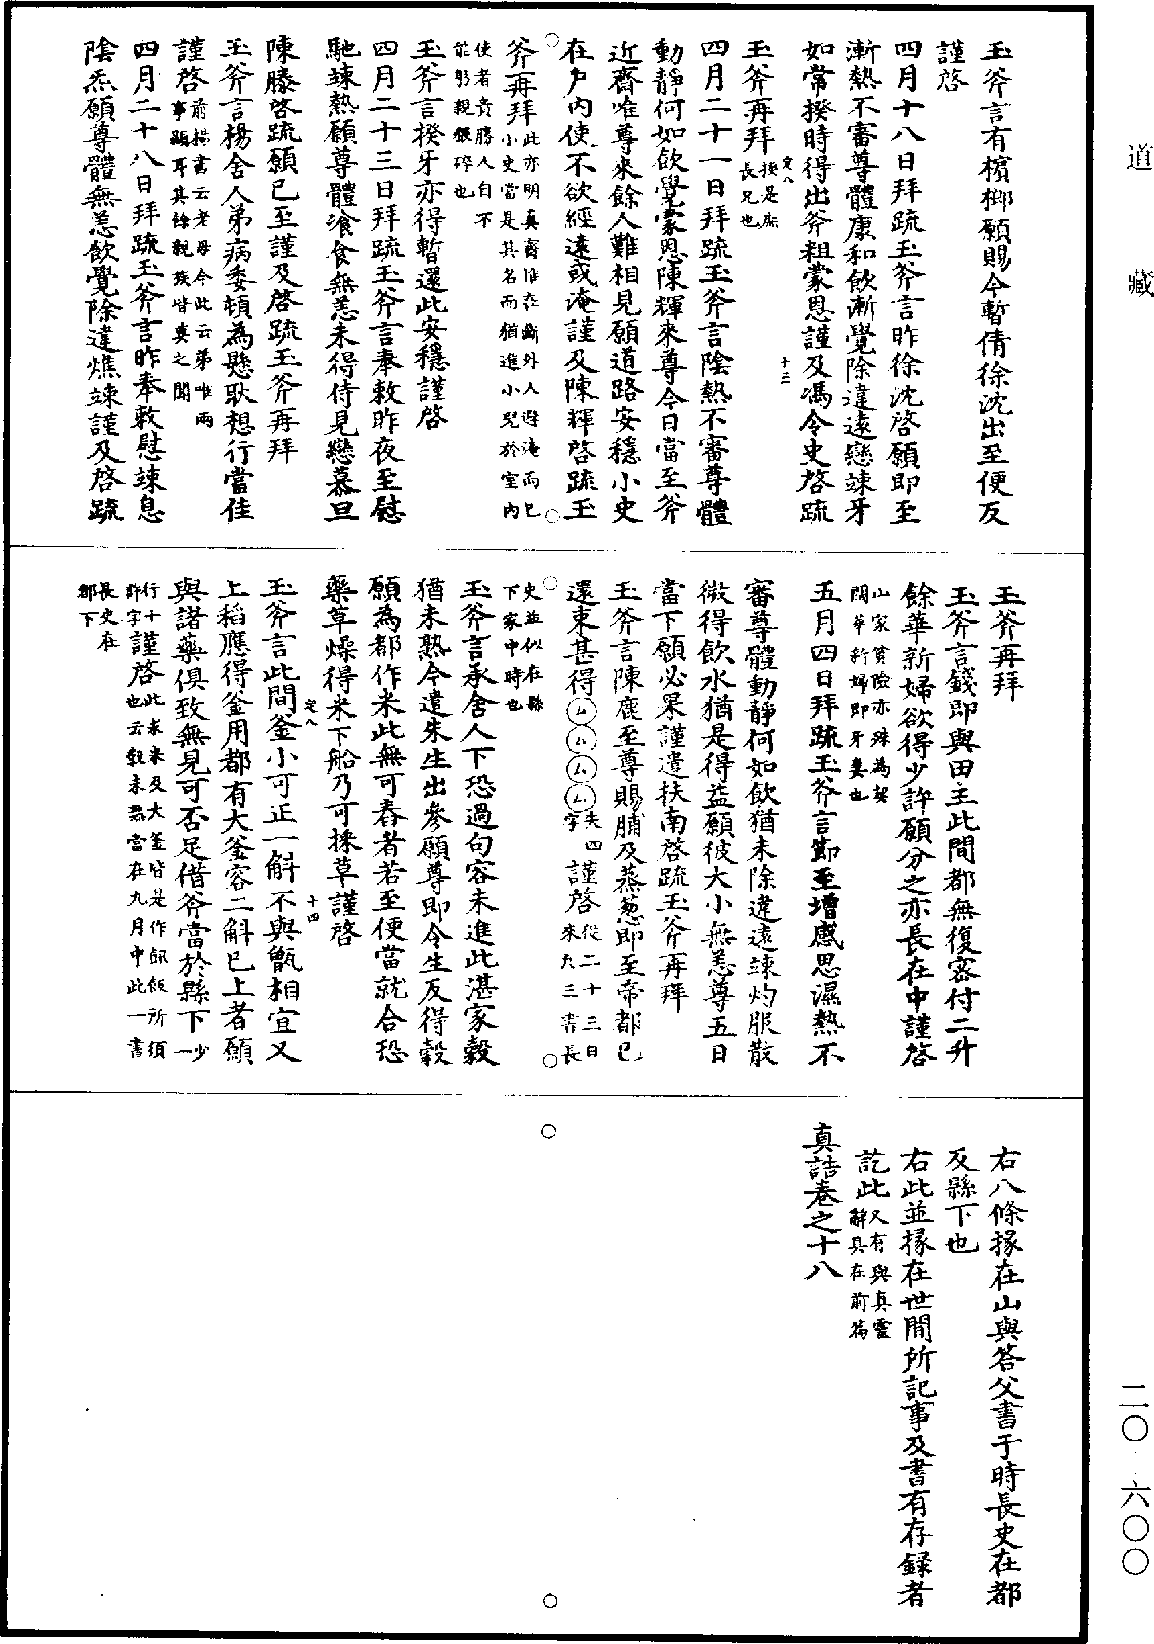 道藏
二〇·六〇〇
玉斧言有檳榔願賜今暫倩徐沈出至便反
謹啓
四月十八日拜疏玉斧言昨徐沈啓願即至
漸熱不審尊體康和飲漸覺除違遠戀竦牙
如常揆時得出斧粗蒙恩謹及馮令史啓疏
玉斧再拜揆是虎
長兄也
定八
十三
四月二十一日拜疏玉斧言陰熱不審尊體
動靜何如飲覺蒙恩陳輝來尊今日當至斧
近齋唯尊來餘人難相見願道路安穩小史
在戶內使不欲經遠或淹謹及陳輝啓疏玉
斧再拜此亦明真齋唯在斷外人遊淹而已
小史當是其名而猶進小兒於室內
使者貴勝人自不
能躬親猥碎也
玉斧言揆牙亦得暫還此安穩謹啓
四月二十三日拜疏玉斧言奉敕昨夜至慰
馳竦熱願尊體飡食無恙未得侍見戀慕旦
陳滕啓疏願已至謹及啓疏玉斧再拜
玉斧言楊舍人弟病委頓為懸耿想行當佳
謹啓前楊書云老母今此云弟唯兩
事顯耳其餘親族皆莫之聞
四月二十八日拜疏玉斧言昨奉敕慰竦息
陰炁願尊體無恙飲覺除違燋竦謹及啓疏
玉斧再拜
玉斧言錢即與田主此間都無復密付二升
餘華新婦欲得少許願分之亦長在中謹啓
山家貧險亦殊為契
闊華新婦即牙妻也
五月四日拜疏玉斧言節至增感思濕熱不
審尊體動靜何如飲猶未除違遠竦灼服散
微得飲水猶是得益願彼大小無恙尊五日
當下願必果謹遣扶南啓疏玉斧再拜
玉斧言陳鹿至尊賜脯及蒸葱即至帝都已
還東甚得厶厶厶厶失四
字謹啓從二十三日
來凡三書長
史並似在縣
下家中時也
玉斧言承舍人下恐過句容未進此湛家穀
猶未熟今遣朱生出參願尊即令生反得穀
願為都作米此無可舂者若至便當就合恐
藥草燥得米下船乃可採草謹啓
定八
十四
玉斧言此間釜小可正一斛不與甑相宜又
上稻應得釜用都有大釜容二斛已上者願
與諸藥俱致無見可否足借斧當於縣下少一
行十
許字謹啓此求米及大釜皆是作䭀飯所須
也云穀未熟當在九月中此一書
長史在
都下
右八條掾在山與答父書于時長史在都
及縣下也
右此並掾在世間所記事及書有存録者
訖此又有與真靈
辭具在前篇
真誥卷之十八